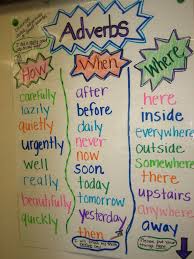 Adverbs
How
carefully
lazily
quietly
urgently
well
really
beautifully
quickly
When
after
before
daily
never
now
soon
today
tomorrow
yesterday
then
Where
here
inside
everywhere
outside
Somewhere
there
upstairs
anywhere
away